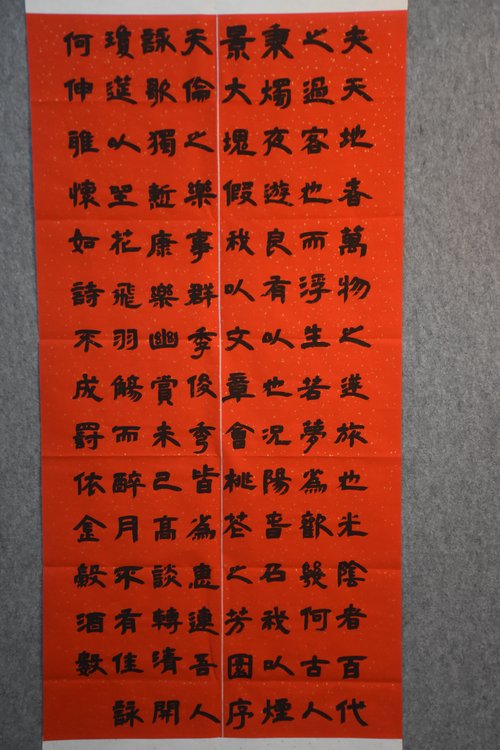 夫天地者萬物之逆旅也光陰者百代
之過客也而浮生若夢為歡幾何古人
秉燭夜遊良有以也況陽春召我以煙
景大塊假我以文章會桃花之芳園序
天倫之樂事群季俊秀皆為惠連吾人
詠歌獨慙康樂幽賞未已高談轉清開
瓊筵以坐花飛羽觴而醉月不有佳詠
何伸雅懷如詩不成罰依金穀酒數